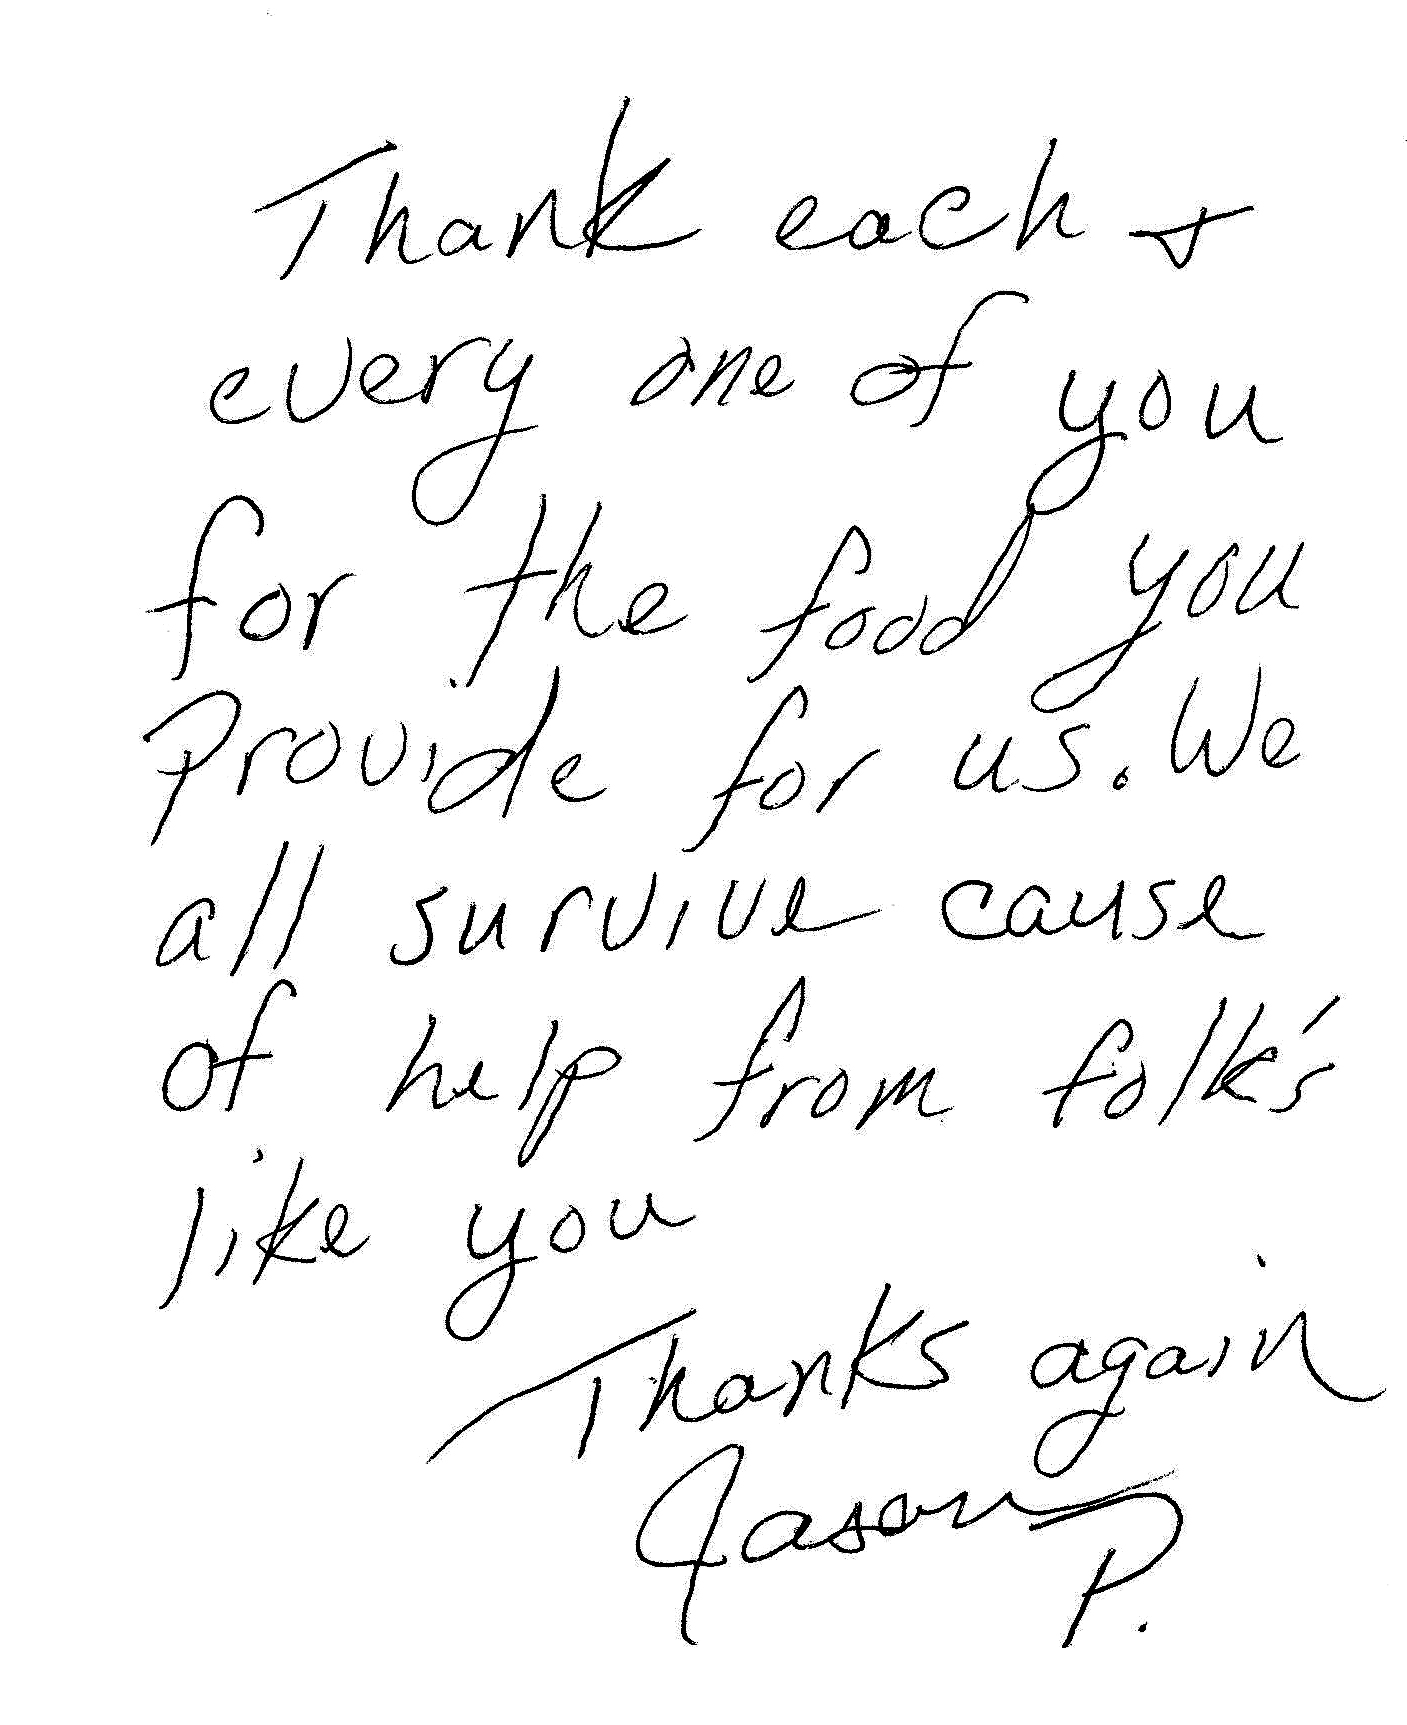 Thank each &
every one of you
for the food you
Provide for us. We
all survive cause
of help from folk's
like you
Thanks again
Jason
P.